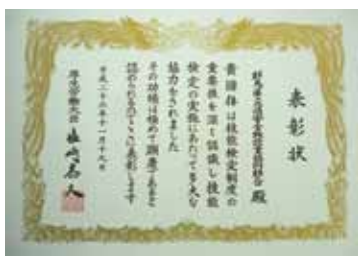 表彰状
殿
貴団体は技能検定制度の
重要性を深く認識し技能
検定の実施にあたって多大な
協力をされました
その功績は極めて顕著であると
認められるのでここに表彰します
平成二十六年十一月十九日
厚生労働大臣